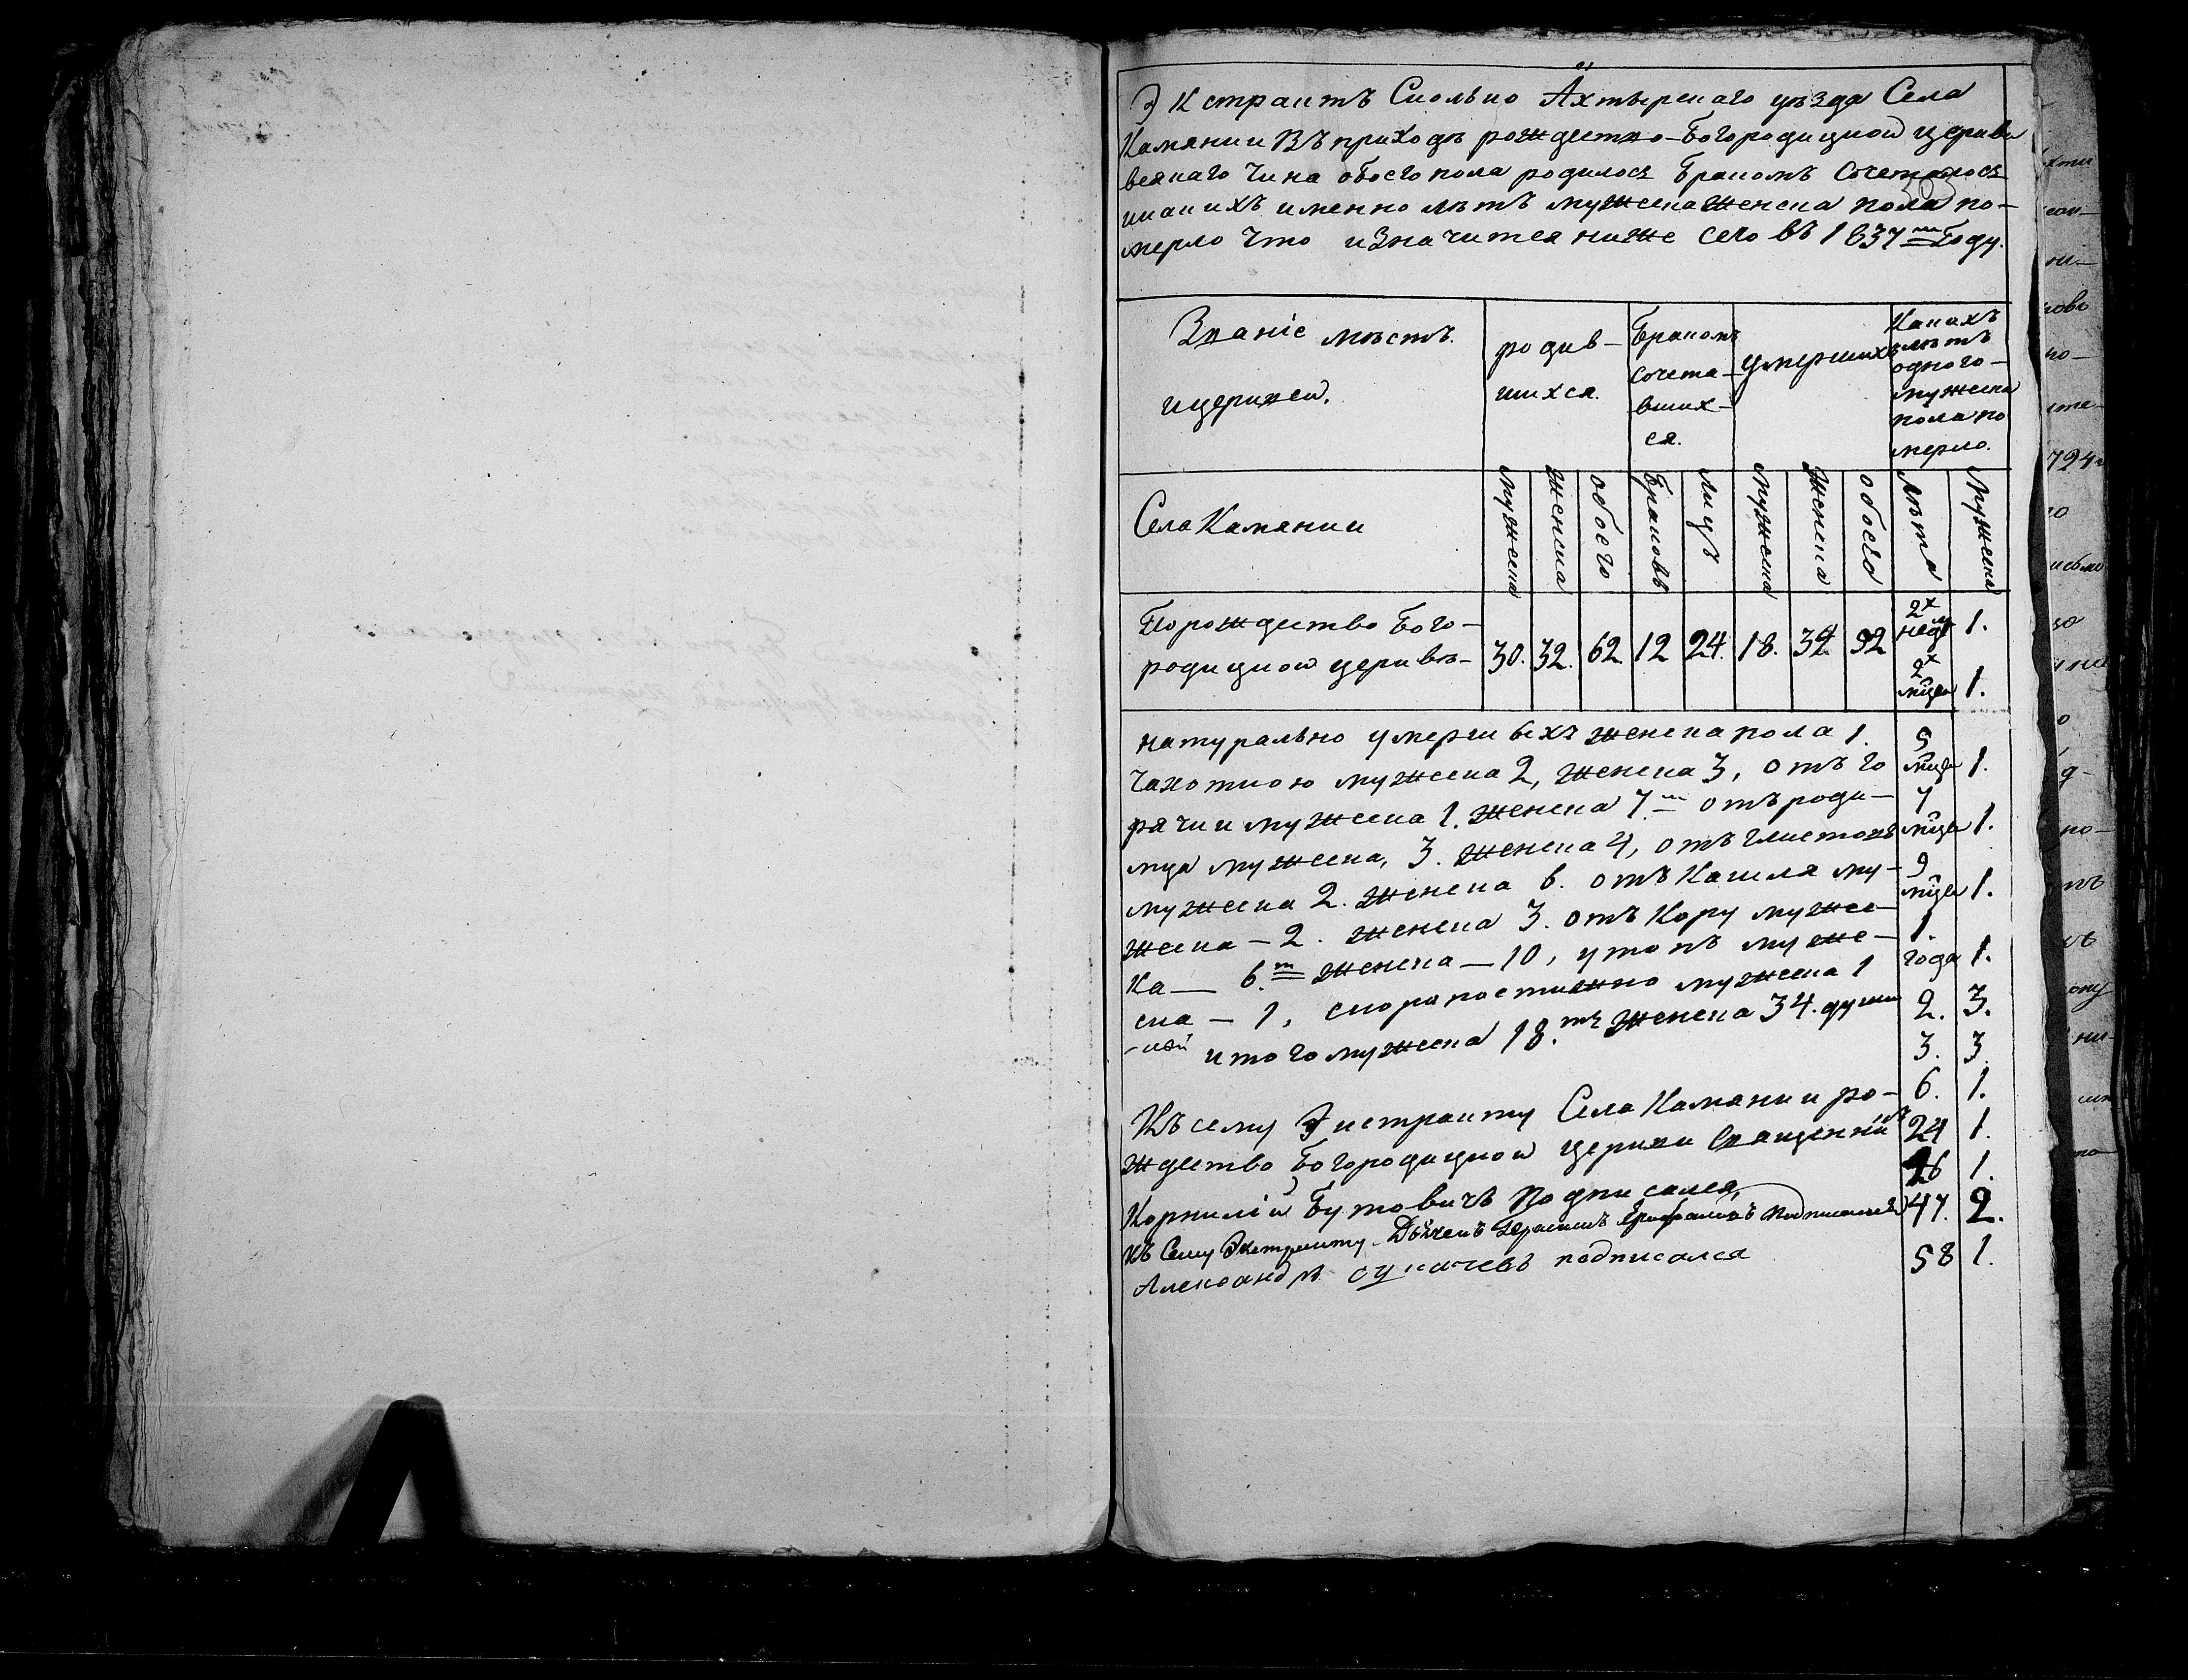 Экстрактъ Сколько Ахтырскаго уѣзда Села
Камянки Въ приходѣ рождество-Богородицкой церкви
всякаго чина обоего пола родилось Бракомъ Сочеталось
икакихъ именно лѣтъ мужеска женска пола по-
мерло что изначится ниже сего въ 1837 мъ Году.
Званіе мѣстъ
ицерквей.
родив-
шихся.
Бракомъ
сочета-
вших-
ся.
умершихъ
Какихъ
лѣтъ
одного-
мужеска
пола по
мерло.
Села Камянки
мужеска
женска
обоего
Браковъ
лицъ
мужеска
женска
обоего
лѣта
мужеска
По рождество Бого-
родицкой церквѣ-
30. 32. 62 12 24. 18. 34 52
2х недѣ 1.
2х мцъ 1.
натурально умершыхъ женска пола 1. 5
чахоткою мужеска 2, женска 3, отъ го мцъ 1.
рячки мужеска 1. женска 7. отъ роди- 7
мца мужеска, 3. женска 4, отъ глистовъ мцъ 1.
мужеска 2. женска 6. отъ Кашля му- 9
жеска - 2. женска 3. отъ Кору мужес- мцъ 1.
ка — 6. женска — 10, утопъ муже- 1.
ска — 1, скоропостижно мужеска 1 года 1.
итого мужеска 18. женска 34. души 2. 3.
3. 3
Къ сему Экстракту Села Камянки ро- 6. 1.
ждество Богородицкой церкви Священникъ 24 1.
26 1.
Корнилій Бутовичъ Подписался 47. 2.
Къ Сему Экстракту Дьячекъ Герасимъ Подписался
Александръ Сукачевъ подписался 58 1.